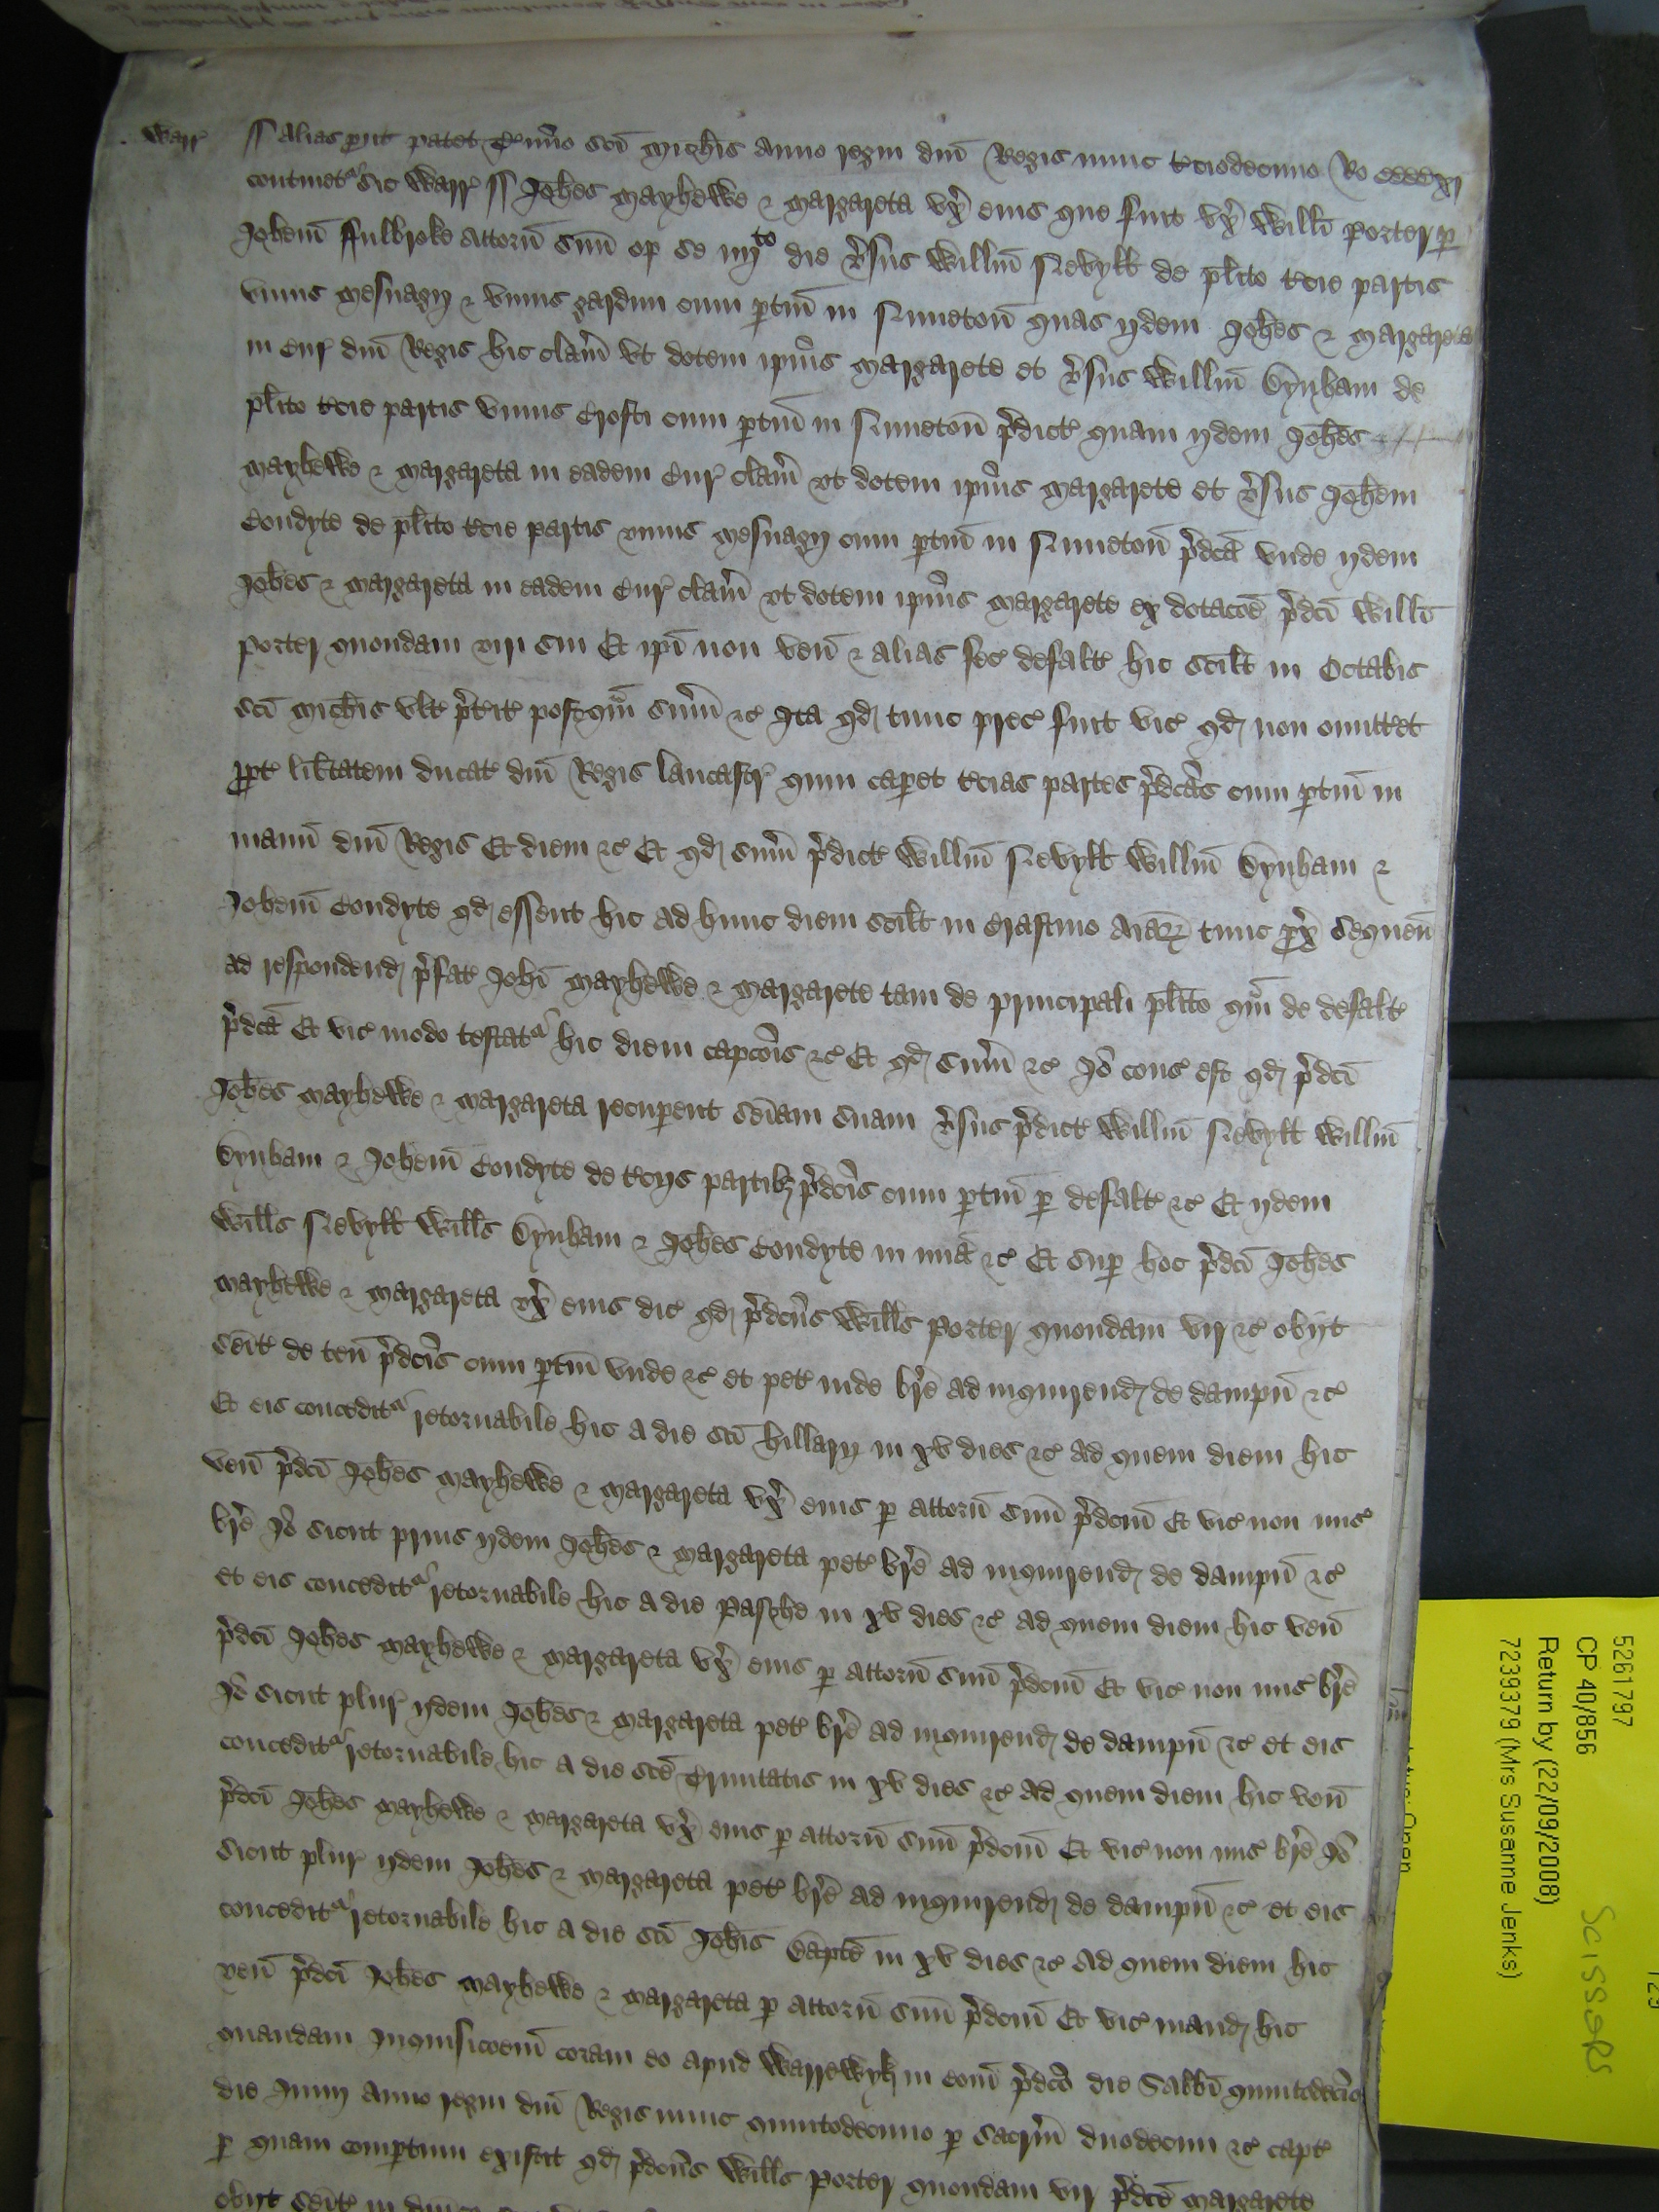 Warr
ss Alias put patet T'mino sci Mich'is anno regni dni Regis nunc t'ciodecimo Ro
continet' sic Warr ss Joh'es Mayhewe & Margareta ux' eius que fuit ux' Willi Porter p
Joh'em Fulbroke attorn suu op se iiijto die v'sus Willm Nevyll de pl'ito t'cie partis
unius mesuagij & unius gardini cum p'tin in Nuneton quas ijdem Joh'es & Margareta
in Cur dni Regis hic clam' ut dotem ip'ius Margarete et v'sus Willm Dynham de
pl'ito t'cie partis unius Crofti cum p'tin in Nuneton p'dict' quam ijdem Joh'es
Mayhewe & Margareta in eadem Cur clam' ut dotem ip'ius Margarete et v'sus Joh'em
Condyte de pl'ito t'cie partis unius mesuagij cum p'tin in Nuneton p'dca unde ijdem
Joh'es & Margareta in eadem Cur clam' ut dotem ip'ius Margarete ex dotacoe p'dci Willi
Porter quondam viri sui Et ip'i non ven & alias fec' defalt' hic scil't in Octabis
sci Mich'is ult' p't'it' postqm sum' &c Ita qd tunc prec' fuit vic' qd non omitt'et
p'pt' lib'tatem ducat' dni Regis Lancastr' quin cap'et t'cias partes p'dcas cum p'tin in
manu dni Regis Et diem &c Et qd sum' p'dict' Willm Nevyll Willm Dynham &
Joh'em Condyte qd essent hic ad hunc diem scil't in Crastino Aiar' tunc p'x' sequen
ad respondend p'fat' Joh'i Mayhewe & Margarete tam de principali pl'ito qm de defalt'
p'dca Et vic' modo testat' hic diem capcois &c Et qd sum' &c Io cons' est qd p'dci
Joh'es Mayhewe & Margareta recup'ent seiam suam v'sus p'dict' Willm Nevyll Willm
Dynham & Joh'em Condyte de t'cijs partib3 p'dcis cum p'tin p defalt' &c Et ijdem
Will's Nevyll Will's Dynham & Joh'es Condyte in mia &c Et sup hoc p'dci Joh'es
Mayhewe & Margareta ux' eius dic' qd p'dcus Will's Porter quondam vir &c obijt
seit' de ten p'dcis cum p'tin unde &c et pet' inde br'e ad inquirend de dampn &c
Et eis concedit' retornabile hic a die sci Hillarij in xv dies &c Ad quem diem hic
ven p'dci Joh'es Mayhewe & Margareta ux' eius p attorn suu p'dcum Et vic' non mis'
br'e Io sicut prius ijdem Joh'es & Margareta pet' br'e ad inquirend de dampn &c
et eis concedit' retornabile hic a die Pasche in xv dies &c Ad quem diem hic ven
p'dci Joh'es Mayhewe & Margareta ux' eius p attorn suu p'dcum Et vic' non mis' br'e
Io sicut plur' ijdem Joh'es & Margareta pet' br'e ad inquirend de dampn &c et eis
concedit' retornabile hic a die sce Trinitatis in xv dies &c Ad quem diem hic ven
p'dci Joh'es Mayhewe & Margareta ux' eius p attorn suu p'dcum Et vic' non mis' br'e Io
sicut plur' ijdem Joh'es & Margareta pet' br'e ad inquirend de dampn &c et eis
concedit' retornabile hic a die sci Joh'is Bapte in xv dies &c Ad quem diem hic
ven p'dci Joh'es Mayhewe & Margareta p attorn suu p'dcum Et vic' mand hic
quandam Inquisicoem coram eo apud Warrewyk in com p'dco die Sabbi quintodecimo
die Junij anno regni dni Regis nunc quintodecimo p sacrm duodecim &c capt'
p quam compertum existit qd p'dcus Will's Porter quondam vir p'dce Margarete
obijt seit' in
5261797
CP 40/856
Return by (22/09/2008)
7239379 (Mrs Susanne Jenks)
SCISSORS